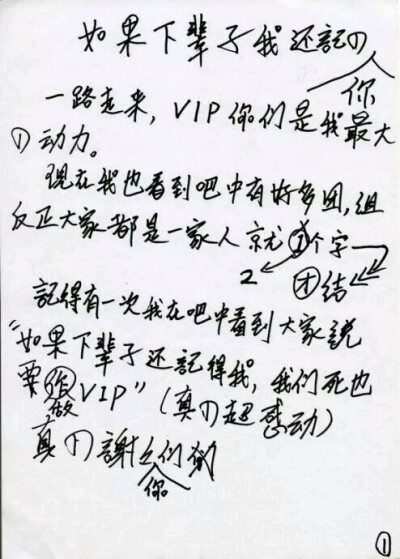 如果下辈子我还記の你
一路走来，VIP你们是我最大
の动力。
現在我也看到吧中有好多团，组
反正大家都是一家人就2个字
团结
記得有一次我在吧中看到大家説
"如果下辈子还記得我，我们死也
要做VIP"（真の超感动）
真の謝谢你们
①